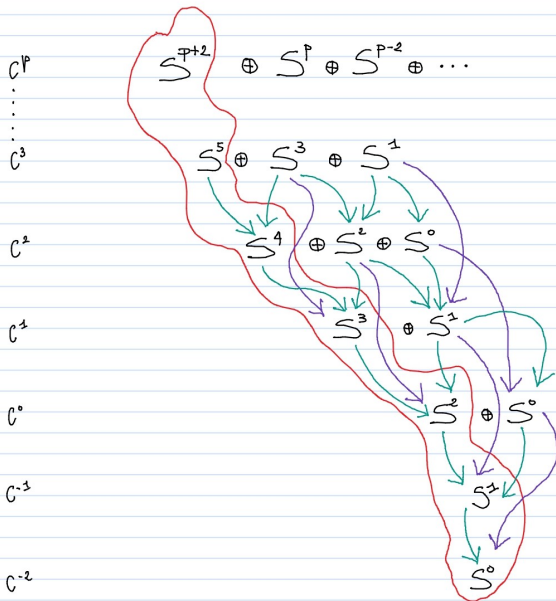 Cᵖ Sᵖ⁺² ⊕ Sᵖ ⊕ Sᵖ⁻² ⊕ ⋯
C³ S⁵ ⊕ S³ ⊕ S¹
C² S⁴ ⊕ S² ⊕ S⁰
C¹ S³ ⊕ S¹
C⁰ S² ⊕ S⁰
C⁻¹ S¹
C⁻² S⁰